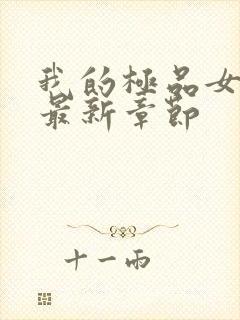 我的極品女
最新章節
十一兩